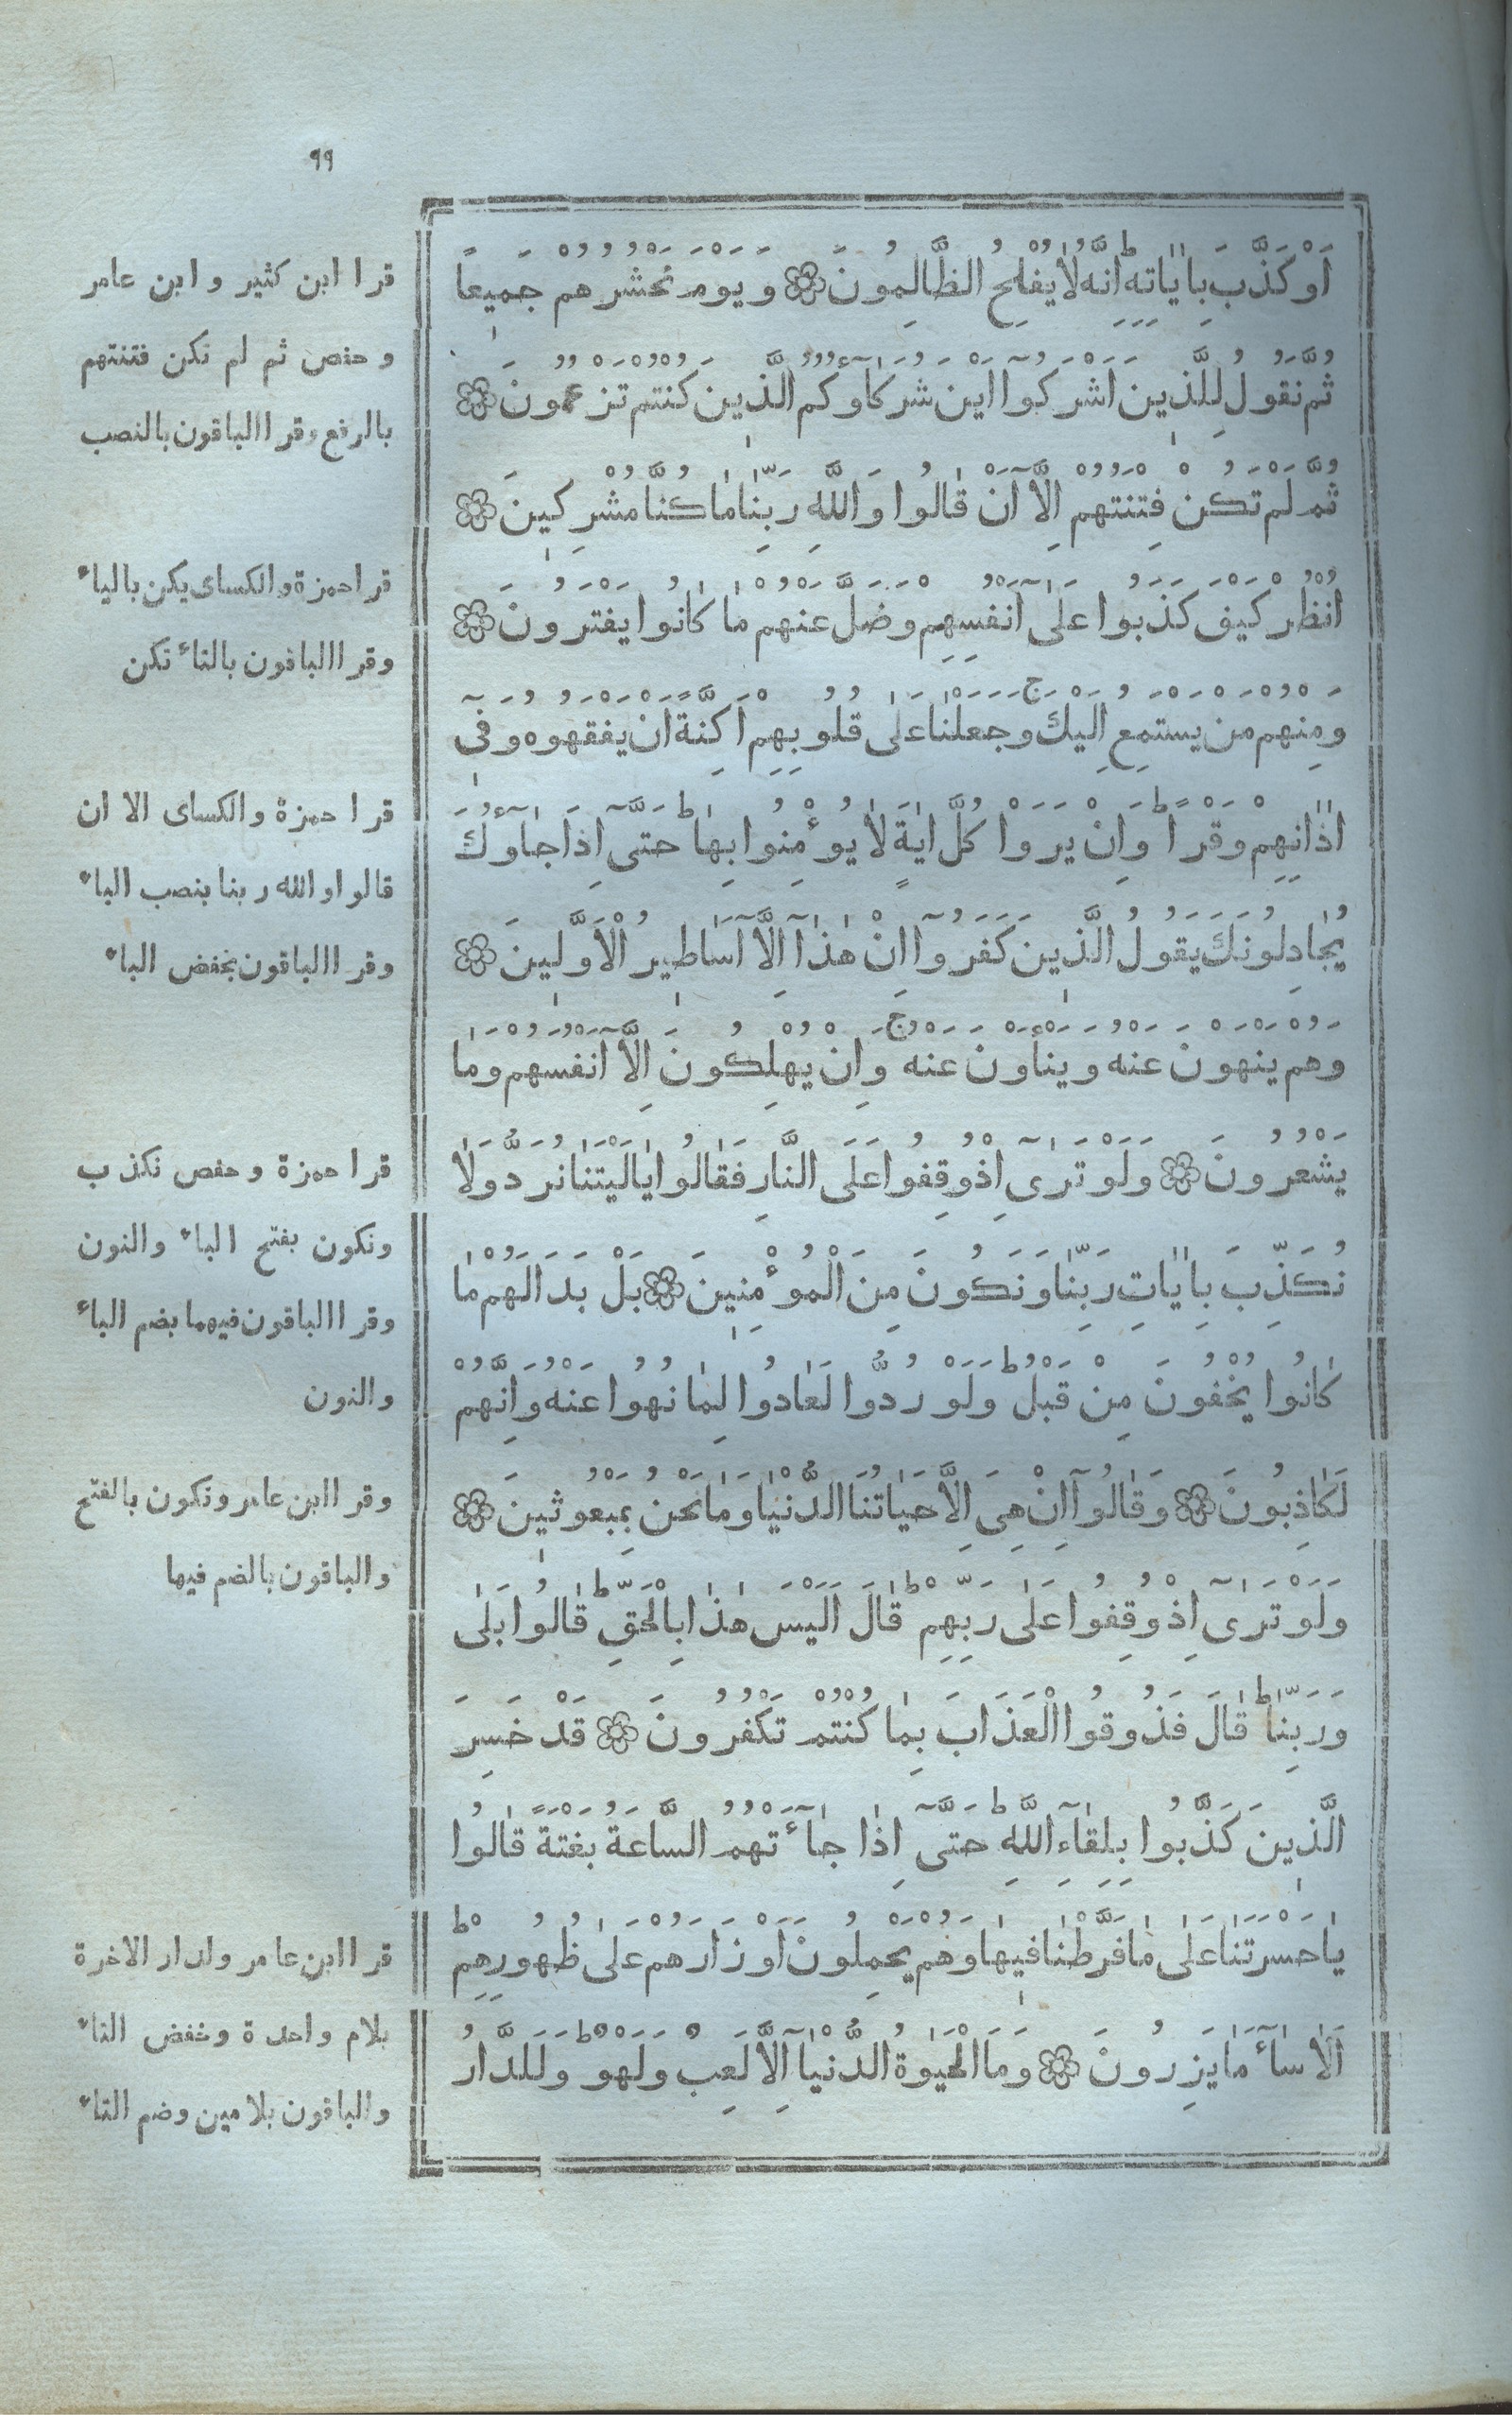 ٩٩
اَوْ كَذَّبَ بِاٰيَاتِهِ ط اِنَّهُ لَا يُفْلِحُ الظَّالِمُونَ ۞ وَيَوْمَ نَحْشُرُهُمْ جَمِيعاً
ثُمَّ نَقُولُ لِلَّذِينَ اَشْرَكُوٓا اَيْنَ شُرَكَآؤُكُمُ الَّذِينَ كُنْتُمْ تَزْعُمُونَ ۞
ثُمَّ لَمْ تَكُنْ فِتْنَتُهُمْ اِلَّآ اَنْ قَالُوا وَاللَّهِ رَبِّنَا مَا كُنَّا مُشْرِكِينَ ۞
اُنْظُرْ كَيْفَ كَذَبُوا عَلٰٓى اَنْفُسِهِمْ وَضَلَّ عَنْهُمْ مَا كَانُوا يَفْتَرُونَ ۞
وَمِنْهُمْ مَنْ يَسْتَمِعُ اِلَيْكَ ج وَجَعَلْنَا عَلٰى قُلُوبِهِمْ اَكِنَّةً اَنْ يَفْقَهُوهُ وَفِىٓ
اٰذَانِهِمْ وَقْراً ط وَاِنْ يَرَوْا كُلَّ اٰيَةٍ لَا يُؤْمِنُوا بِهَا ط حَتَّىٓ اِذَا جَآؤُكَ
يُجَادِلُونَكَ يَقُولُ الَّذِينَ كَفَرُوٓا اِنْ هٰذَآ اِلَّآ اَسَاطِيرُ الْاَوَّلِينَ ۞
وَهُمْ يَنْهَوْنَ عَنْهُ وَيَنْأَوْنَ عَنْهُ ج وَاِنْ يُهْلِكُونَ اِلَّآ اَنْفُسَهُمْ وَمَا
يَشْعُرُونَ ۞ وَلَوْ تَرٰٓى اِذْ وُقِفُوا عَلَى النَّارِ فَقَالُوا يَا لَيْتَنَا نُرَدُّ وَلَا
نُكَذِّبَ بِاٰيَاتِ رَبِّنَا وَنَكُونَ مِنَ الْمُؤْمِنِينَ ۞ بَلْ بَدَا لَهُمْ مَا
كَانُوا يُخْفُونَ مِنْ قَبْلُ ط وَلَوْ رُدُّوا لَعَادُوا لِمَا نُهُوا عَنْهُ وَاِنَّهُمْ
لَكَاذِبُونَ ۞ وَقَالُوٓا اِنْ هِىَ اِلَّا حَيَاتُنَا الدُّنْيَا وَمَا نَحْنُ بِمَبْعُوثِينَ ۞
وَلَوْ تَرٰٓى اِذْ وُقِفُوا عَلٰى رَبِّهِمْ ط قَالَ اَلَيْسَ هٰذَا بِالْحَقِّ ط قَالُوا بَلٰى
وَرَبِّنَا ط قَالَ فَذُوقُوا الْعَذَابَ بِمَا كُنْتُمْ تَكْفُرُونَ ۞ قَدْ خَسِرَ
الَّذِينَ كَذَّبُوا بِلِقَآءِ اللَّهِ ط حَتَّىٓ اِذَا جَآءَتْهُمُ السَّاعَةُ بَغْتَةً قَالُوا
يَا حَسْرَتَنَا عَلٰى مَا فَرَّطْنَا فِيهَا وَهُمْ يَحْمِلُونَ اَوْزَارَهُمْ عَلٰى ظُهُورِهِمْ ط
اَلَا سَآءَ مَا يَزِرُونَ ۞ وَمَا الْحَيٰوةُ الدُّنْيَآ اِلَّا لَعِبٌ وَلَهْوٌ ط وَلَلدَّارُ
قرا ابن كثير وابن عامر
وحفص ثم لم تكن فتنتهم
بالرفع وقرا الباقون بالنصب
قرا حمزة والكساى يكن بالياء
وقرا الباقون بالتاء تكن
قرا حمزة والكساى الا ان
قالوا والله ربنا بنصب الباء
وقرا الباقون بخفض الباء
قرا حمزة وحفص نكذب
ونكون بفتح الباء والنون
وقرا الباقون فيهما بضم الباء
والنون
وقرا ابن عامر ونكون بالفتح
والباقون بالضم فيها
قرا ابن عامر ولدار الاخرة
بلام واحدة وخفض التاء
والباقون بلامين وضم التاء